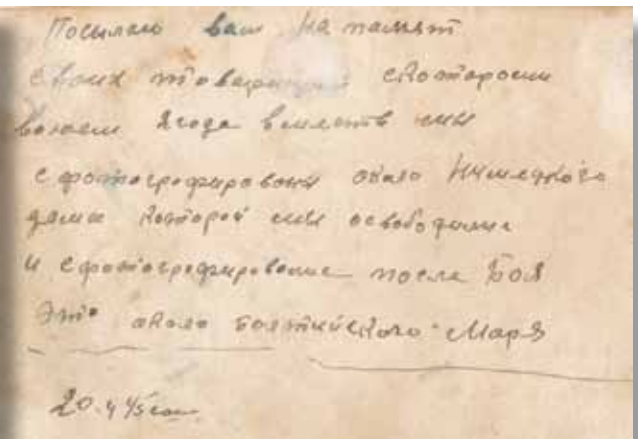 Посылаю вам на памят
своих товарищей скоторыми
воюем 2 года вместе мы
сфотографирваны около Нимецкого
дама которой мы освободили
и сфотографировались после Боя
Это около Болтийского Маря
20.4 45